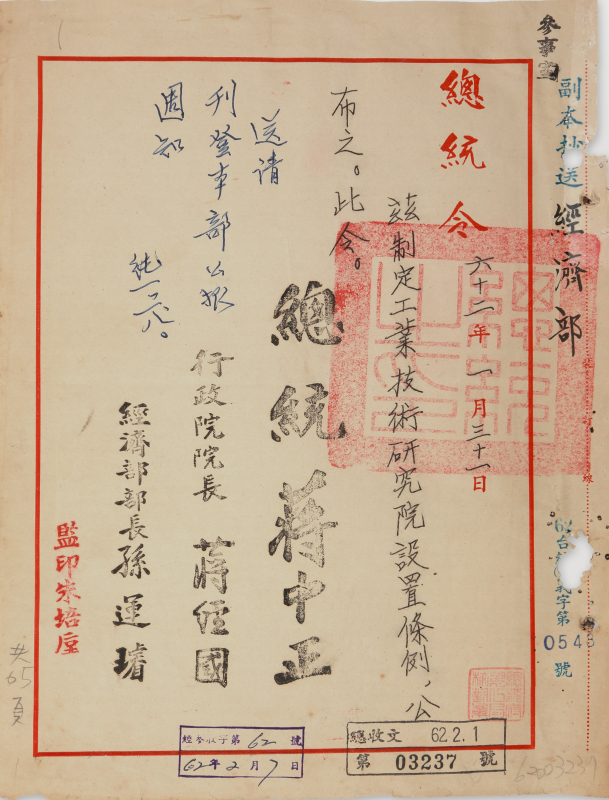 參事室
副本抄送經濟部
62台
字第
054
號
總統令
六十二年一月三十一日
茲制定工業技術研究院設置條例，公
布之。此令。
總統 蔣中正
行政院院長 蔣經國
經濟部部長 孫運璿
監印朱培垕
送請
刊登本部公報
週知
共65頁
經參收字第62號
62年2月7日
總收文 62.2.1
第 03237 號
6203237